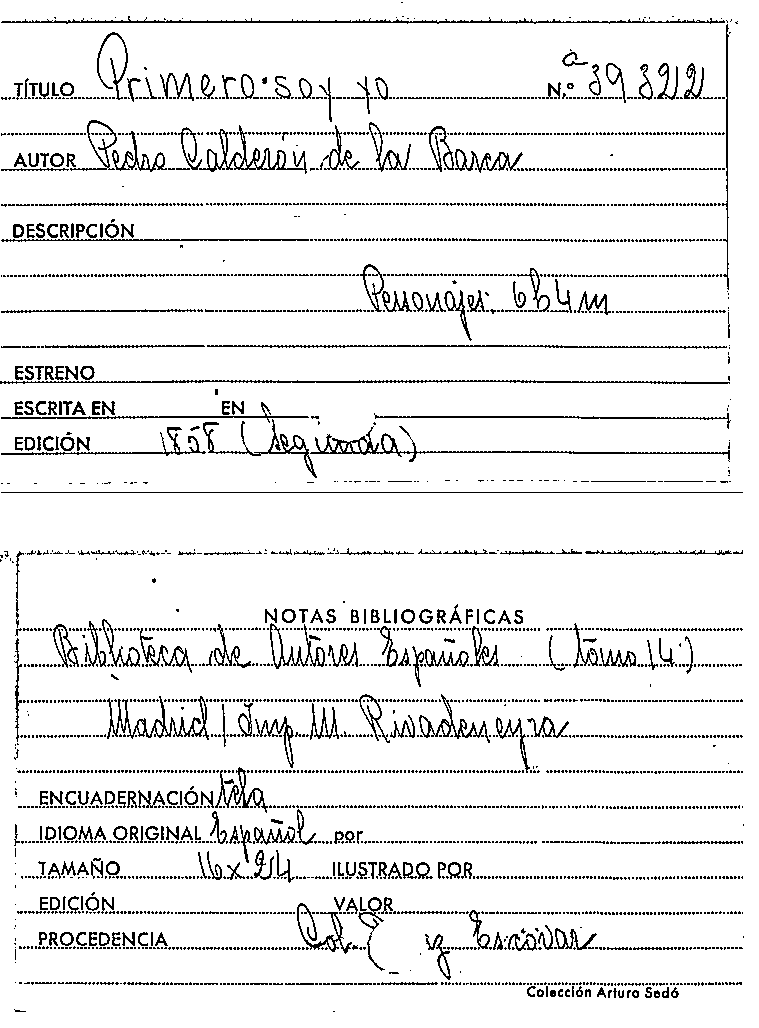 TÍTULO Primero soy yo N.º a 39322
AUTOR Pedro Calderón de la Barca
DESCRIPCIÓN
Personajes: 6h 4m
ESTRENO
ESCRITA EN EN
EDICIÓN 1858 (Segunda)
NOTAS BIBLIOGRÁFICAS
Biblioteca de Autores Españoles (tomo 14)
Madrid / Imp. M. Rivadeneyra
ENCUADERNACIÓN tela
IDIOMA ORIGINAL Español por
TAMAÑO 16 x 24 ILUSTRADO POR
EDICIÓN VALOR
PROCEDENCIA Col. y Escovar
Colección Arturo Sedó